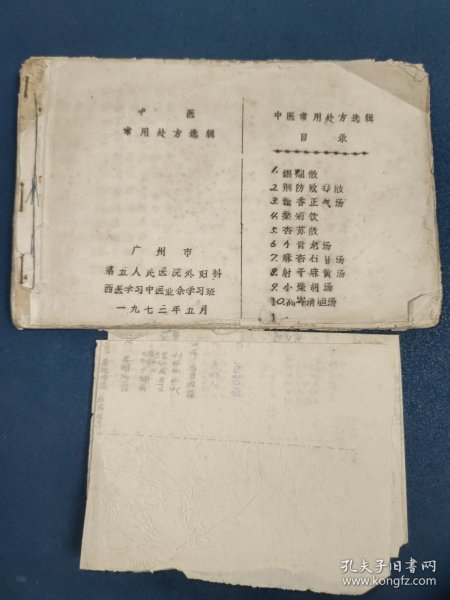 中医
常用处方选辑
广州市
第五人民医院外妇科
西医学习中医业余学习班
一九七三年五月
中医常用处方选辑
目录
1. 银翘散
2. 荆防败毒散
3. 藿香正气汤
4. 桑菊饮
5. 杏苏散
6. 小青龙汤
7. 麻杏石甘汤
8. 射干麻黄汤
9. 小柴胡汤
10. 蒿芩清胆汤
孔夫子旧书网
www.kongfz.com